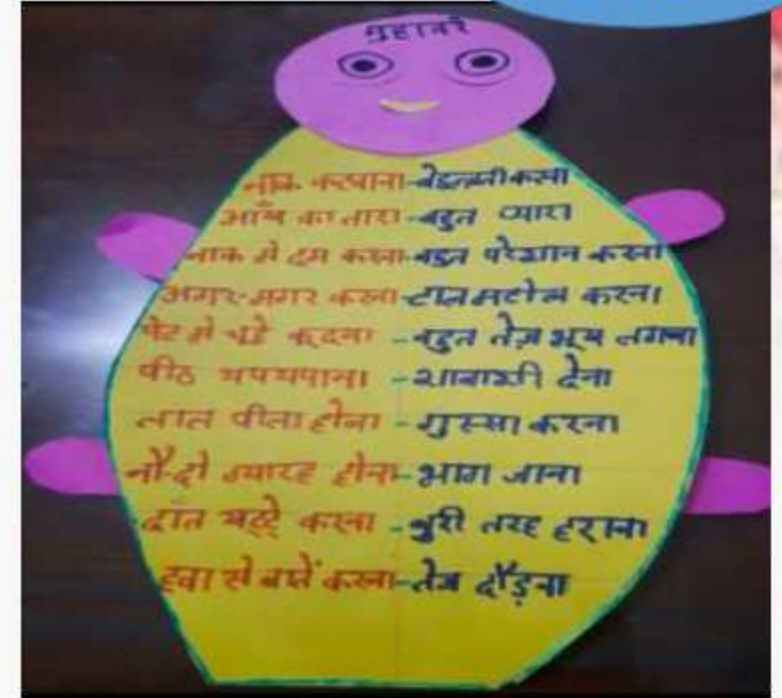 मुहावरे
नाक कटवाना-बेइज्जती करना
आँख का तारा-बहुत प्यारा
नाक में दम करना-बहुत परेशान करना
अगर-मगर करना-टाल मटोल करना
पेट में चूहे कूदना-बहुत तेज़ भूख लगना
पीठ थपथपाना-शाबाशी देना
लाल पीला होना-गुस्सा करना
नौ-दो ग्यारह होना-भाग जाना
दांत खट्टे करना-बुरी तरह हराना
हवा से बातें करना-तेज दौड़ना